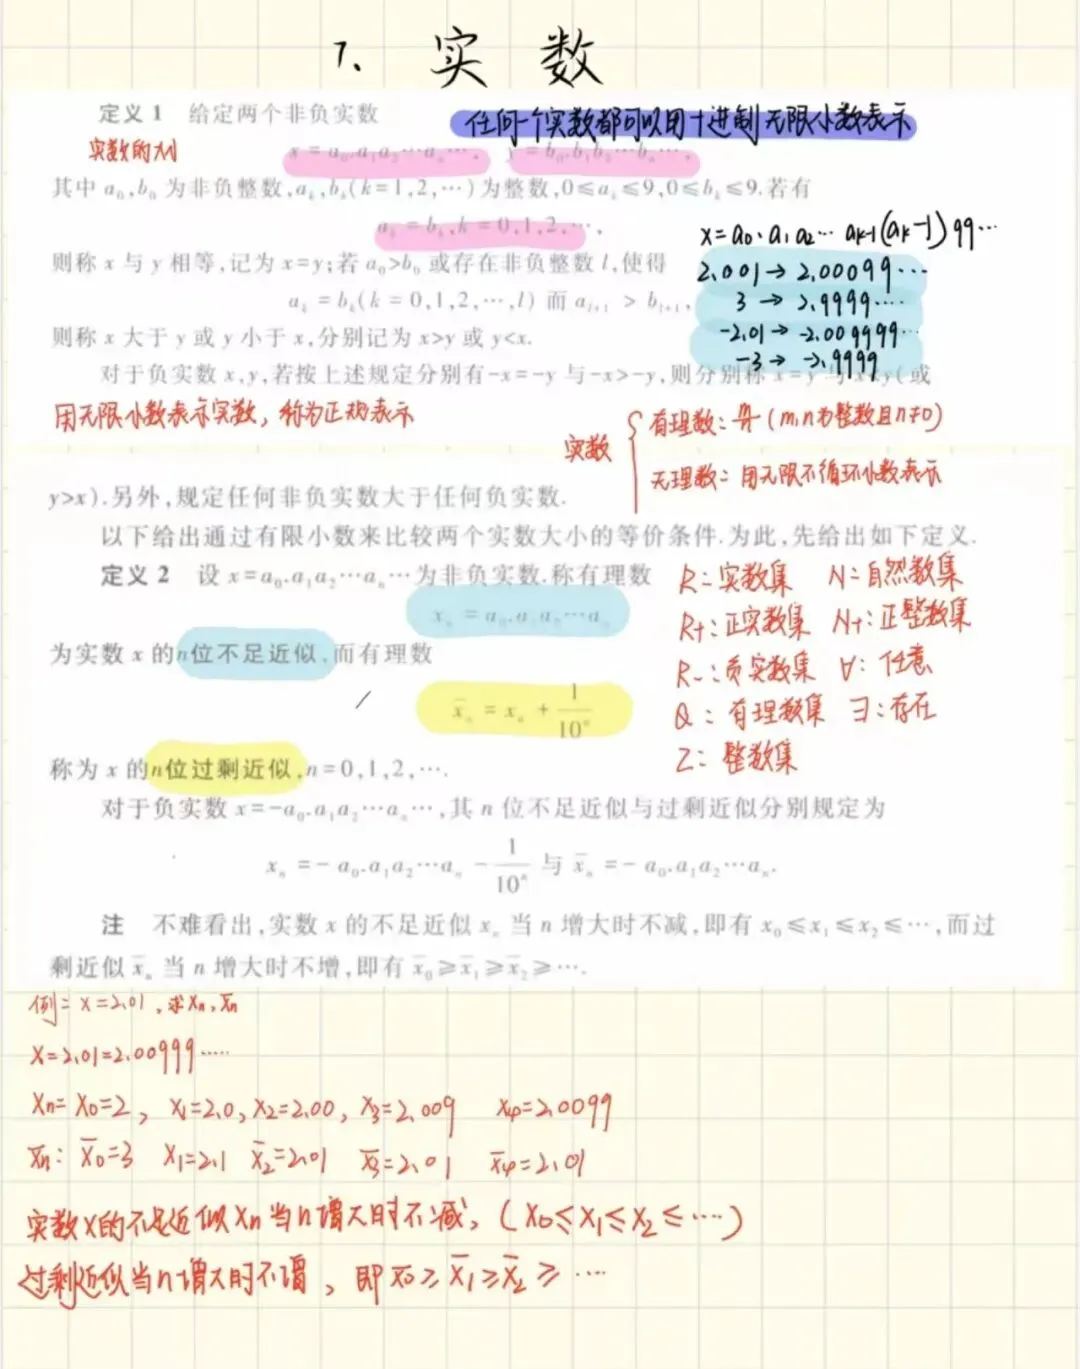 1、实数
定义 1 给定两个非负实数
任何一个实数都可以用十进制无限小数表示
实数的大小
x = a₀.a₁a₂⋯aₙ⋯, y = b₀.b₁b₂⋯bₙ⋯,
其中 a₀,b₀ 为非负整数,aₖ,bₖ(k=1,2,⋯)为整数,0≤aₖ≤9,0≤bₖ≤9.若有
aₖ = bₖ,k = 0,1,2,⋯,
x=a₀.a₁a₂⋯aₖ₋₁(aₖ-1)99⋯
则称 x 与 y 相等,记为 x=y;若 a₀>b₀ 或存在非负整数 l,使得
2.001→2.00099⋯
aₖ = bₖ(k = 0,1,2,⋯,l) 而 aₗ₊₁ > bₗ₊₁,
3→2.9999⋯
则称 x 大于 y 或 y 小于 x,分别记为 x>y 或 y<x.
-2.01→-2.009999⋯
-3→-2.9999
对于负实数 x,y,若按上述规定分别有-x=-y 与-x>-y,则分别称 x=y 与 x<y(或
用无限小数表示实数，称为正规表示
实数
有理数：(m,n为整数且n≠0)
无理数：用无限不循环小数表示
y>x).另外,规定任何非负实数大于任何负实数.
以下给出通过有限小数来比较两个实数大小的等价条件.为此,先给出如下定义.
定义 2 设 x=a₀.a₁a₂⋯aₙ⋯为非负实数.称有理数
xₙ = a₀.a₁a₂⋯aₙ
为实数 x 的n位不足近似,而有理数
x̄ₙ = xₙ + 1/10ⁿ
称为 x 的n位过剩近似,n=0,1,2,⋯.
R：实数集 N：自然数集
R+：正实数集 N+：正整数集
R-：负实数集 ∀：任意
Q：有理数集 ∃：存在
Z：整数集
对于负实数 x=-a₀.a₁a₂⋯aₙ⋯,其 n 位不足近似与过剩近似分别规定为
xₙ = - a₀.a₁a₂⋯aₙ - 1/10ⁿ 与 x̄ₙ = - a₀.a₁a₂⋯aₙ.
注 不难看出,实数 x 的不足近似 xₙ 当 n 增大时不减,即有 x₀≤x₁≤x₂≤⋯,而过
剩近似 x̄ₙ 当 n 增大时不增,即有 x̄₀≥x̄₁≥x̄₂≥⋯.
例：x=2.01，求xₙ,x̄ₙ
x=2.01=2.00999⋯⋯
xₙ=x₀=2，x₁=2.0，x₂=2.00，x₃=2.009 x₄=2.0099
x̄ₙ：x̄₀=3 x₁=2.1 x̄₂=2.01 x̄₃=2.01 x̄₄=2.01
实数x的不足近似xₙ当n增大时不减，(x₀≤x₁≤x₂≤⋯⋯)
过剩近似当n增大时不增，即x̄₀≥x̄₁≥x̄₂≥⋯⋯